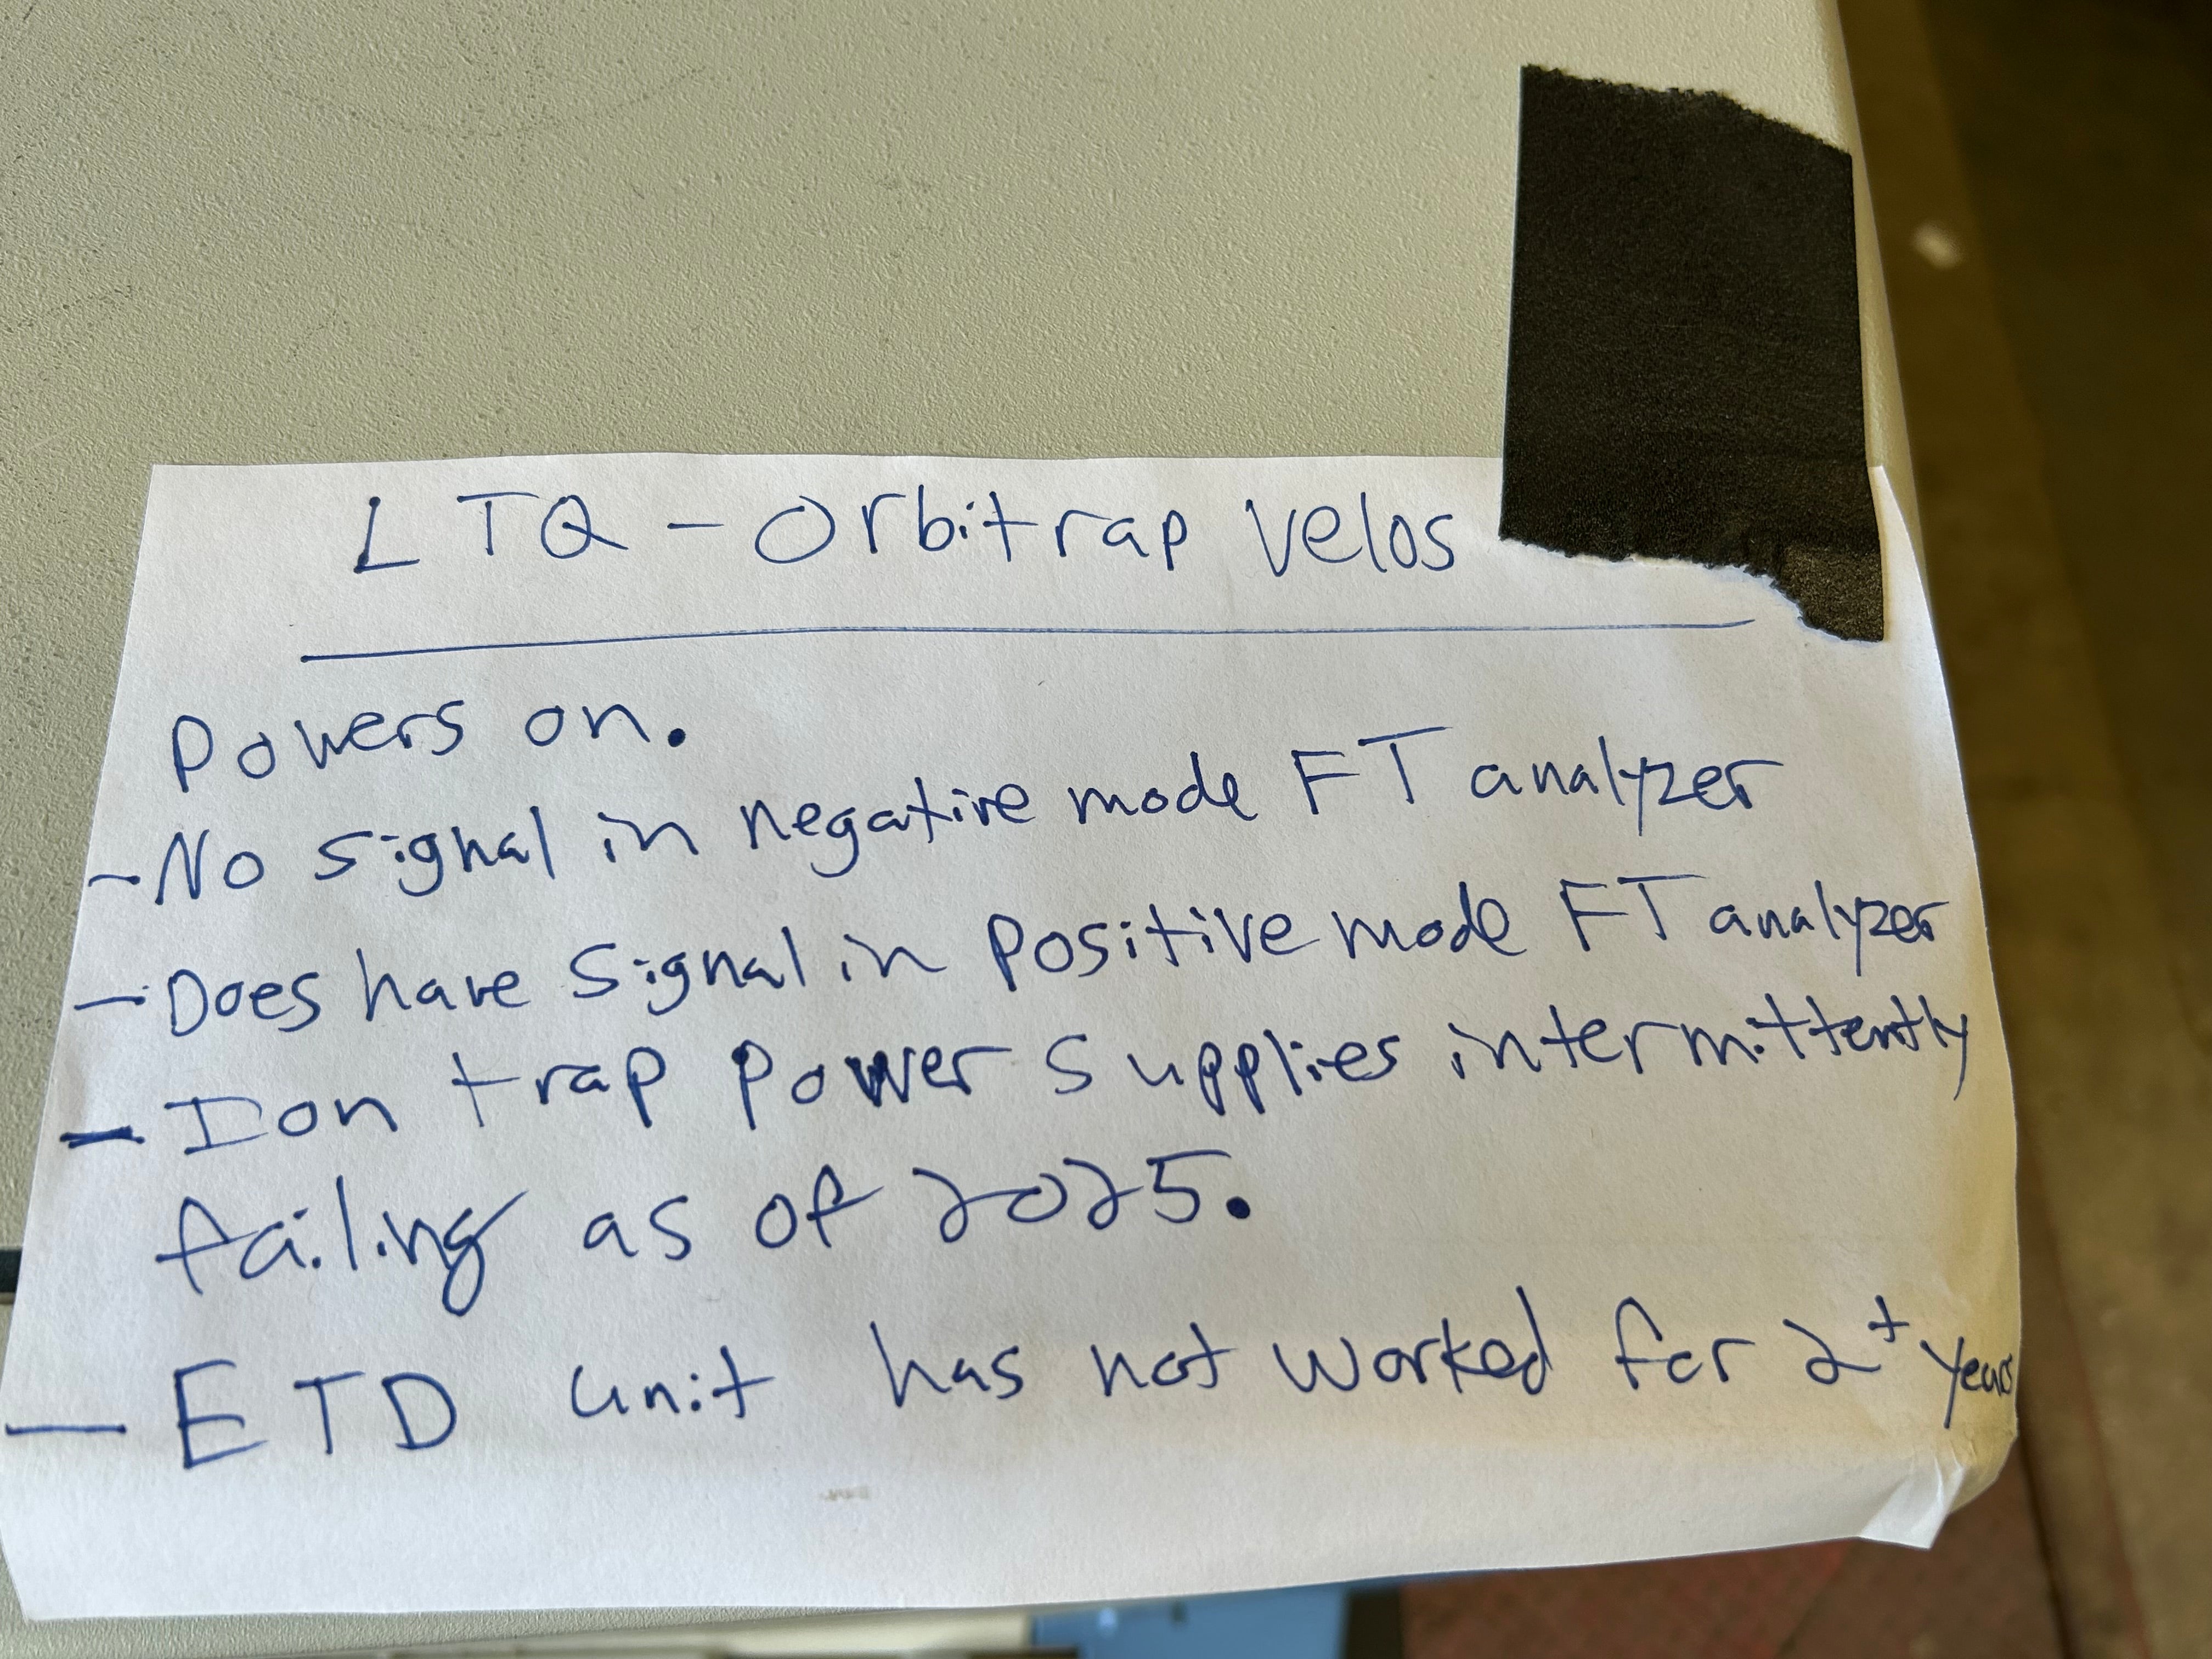 LTQ - Orbitrap Velos
Powers on.
- No signal in negative mode FT analyzer
- Does have signal in positive mode FT analyzer
- Ion trap power supplies intermittently
failing as of 2025.
- ETD unit has not worked for 2+ years